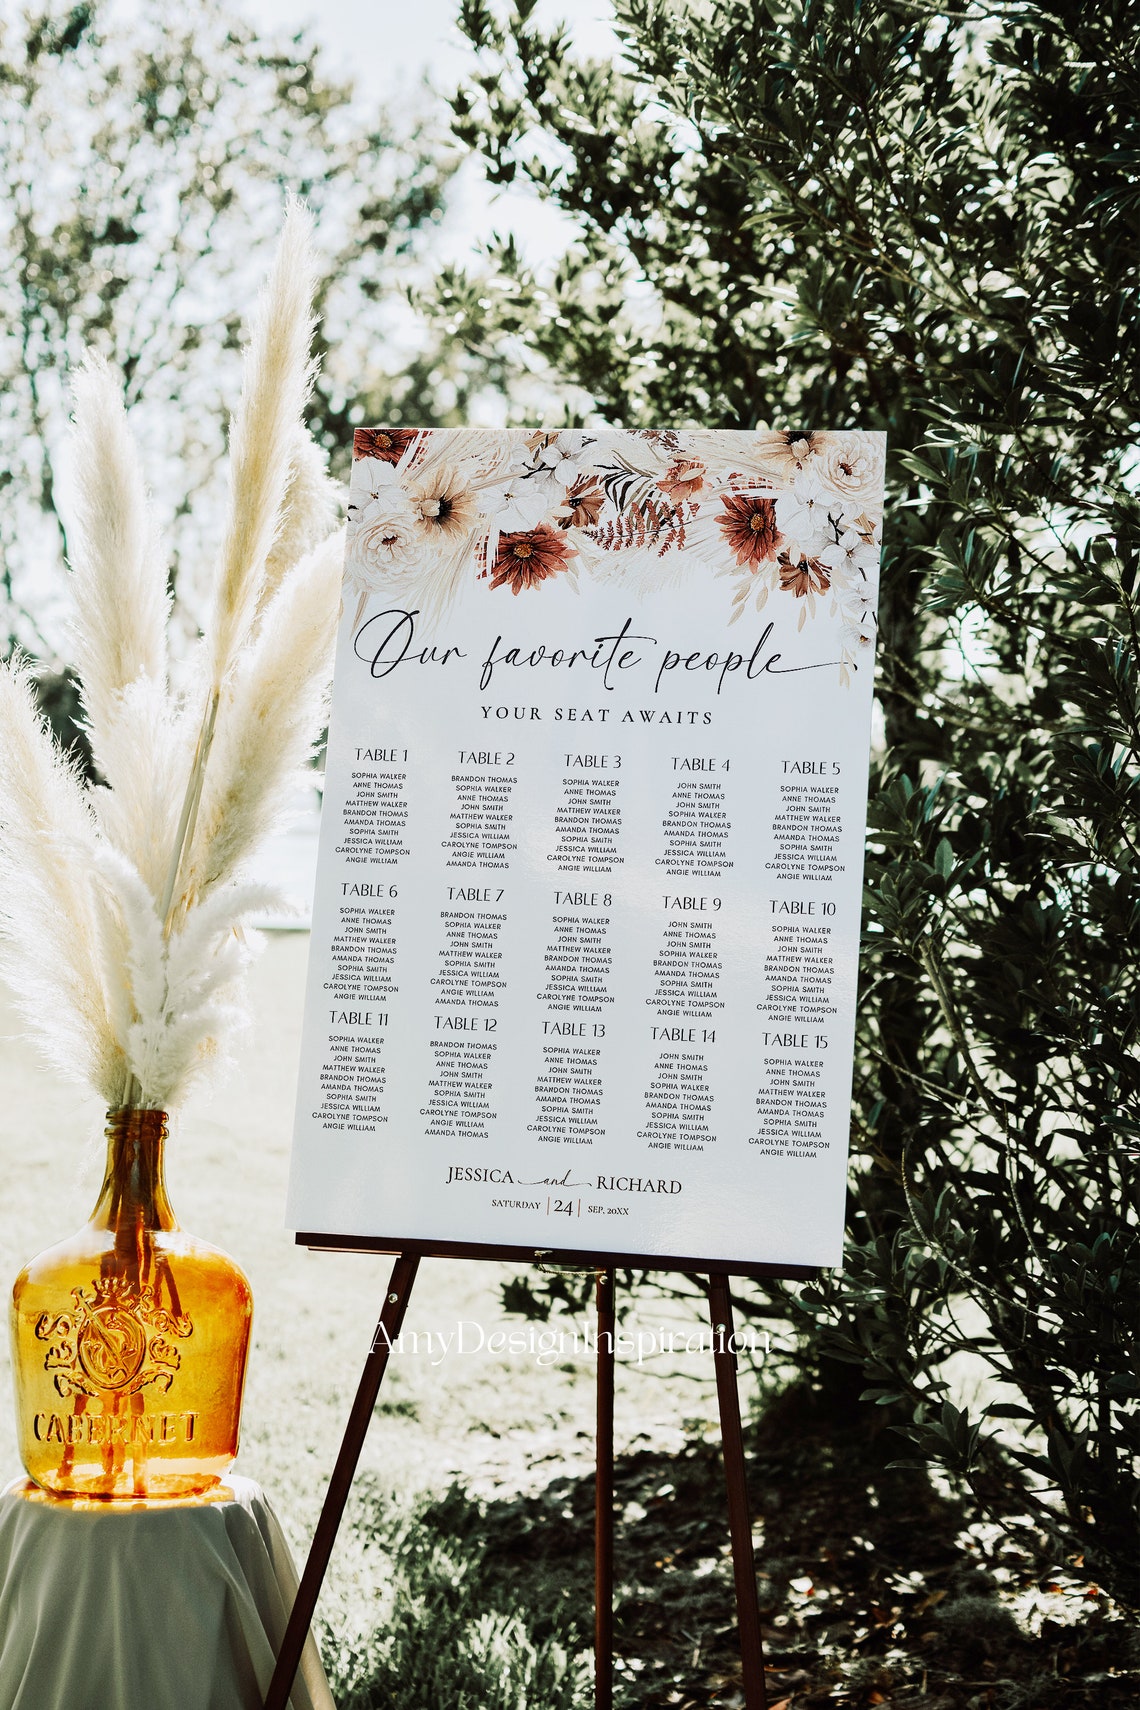 Our favorite people
YOUR SEAT AWAITS
TABLE 1
SOPHIA WALKER
ANNE THOMAS
JOHN SMITH
MATTHEW WALKER
BRANDON THOMAS
AMANDA THOMAS
SOPHIA SMITH
JESSICA WILLIAM
CAROLYNE TOMPSON
ANGIE WILLIAM
TABLE 2
BRANDON THOMAS
SOPHIA WALKER
ANNE THOMAS
JOHN SMITH
MATTHEW WALKER
SOPHIA SMITH
JESSICA WILLIAM
CAROLYNE TOMPSON
ANGIE WILLIAM
AMANDA THOMAS
TABLE 3
SOPHIA WALKER
ANNE THOMAS
JOHN SMITH
MATTHEW WALKER
BRANDON THOMAS
AMANDA THOMAS
SOPHIA SMITH
JESSICA WILLIAM
CAROLYNE TOMPSON
ANGIE WILLIAM
TABLE 4
JOHN SMITH
ANNE THOMAS
JOHN SMITH
SOPHIA WALKER
BRANDON THOMAS
AMANDA THOMAS
SOPHIA SMITH
JESSICA WILLIAM
CAROLYNE TOMPSON
ANGIE WILLIAM
TABLE 5
SOPHIA WALKER
ANNE THOMAS
JOHN SMITH
MATTHEW WALKER
BRANDON THOMAS
AMANDA THOMAS
SOPHIA SMITH
JESSICA WILLIAM
CAROLYNE TOMPSON
ANGIE WILLIAM
TABLE 6
SOPHIA WALKER
ANNE THOMAS
JOHN SMITH
MATTHEW WALKER
BRANDON THOMAS
AMANDA THOMAS
SOPHIA SMITH
JESSICA WILLIAM
CAROLYNE TOMPSON
ANGIE WILLIAM
TABLE 7
BRANDON THOMAS
SOPHIA WALKER
ANNE THOMAS
JOHN SMITH
MATTHEW WALKER
SOPHIA SMITH
JESSICA WILLIAM
CAROLYNE TOMPSON
ANGIE WILLIAM
AMANDA THOMAS
TABLE 8
SOPHIA WALKER
ANNE THOMAS
JOHN SMITH
MATTHEW WALKER
BRANDON THOMAS
AMANDA THOMAS
SOPHIA SMITH
JESSICA WILLIAM
CAROLYNE TOMPSON
ANGIE WILLIAM
TABLE 9
JOHN SMITH
ANNE THOMAS
JOHN SMITH
SOPHIA WALKER
BRANDON THOMAS
AMANDA THOMAS
SOPHIA SMITH
JESSICA WILLIAM
CAROLYNE TOMPSON
ANGIE WILLIAM
TABLE 10
SOPHIA WALKER
ANNE THOMAS
JOHN SMITH
MATTHEW WALKER
BRANDON THOMAS
AMANDA THOMAS
SOPHIA SMITH
JESSICA WILLIAM
CAROLYNE TOMPSON
ANGIE WILLIAM
TABLE 11
SOPHIA WALKER
ANNE THOMAS
JOHN SMITH
MATTHEW WALKER
BRANDON THOMAS
AMANDA THOMAS
SOPHIA SMITH
JESSICA WILLIAM
CAROLYNE TOMPSON
ANGIE WILLIAM
TABLE 12
BRANDON THOMAS
SOPHIA WALKER
ANNE THOMAS
JOHN SMITH
MATTHEW WALKER
SOPHIA SMITH
JESSICA WILLIAM
CAROLYNE TOMPSON
ANGIE WILLIAM
AMANDA THOMAS
TABLE 13
SOPHIA WALKER
ANNE THOMAS
JOHN SMITH
MATTHEW WALKER
BRANDON THOMAS
AMANDA THOMAS
SOPHIA SMITH
JESSICA WILLIAM
CAROLYNE TOMPSON
ANGIE WILLIAM
TABLE 14
JOHN SMITH
ANNE THOMAS
JOHN SMITH
SOPHIA WALKER
BRANDON THOMAS
AMANDA THOMAS
SOPHIA SMITH
JESSICA WILLIAM
CAROLYNE TOMPSON
ANGIE WILLIAM
TABLE 15
SOPHIA WALKER
ANNE THOMAS
JOHN SMITH
MATTHEW WALKER
BRANDON THOMAS
AMANDA THOMAS
SOPHIA SMITH
JESSICA WILLIAM
CAROLYNE TOMPSON
ANGIE WILLIAM
JESSICA and RICHARD
SATURDAY | 24 | SEP, 20XX
AmyDesignInspiration
CABERNET